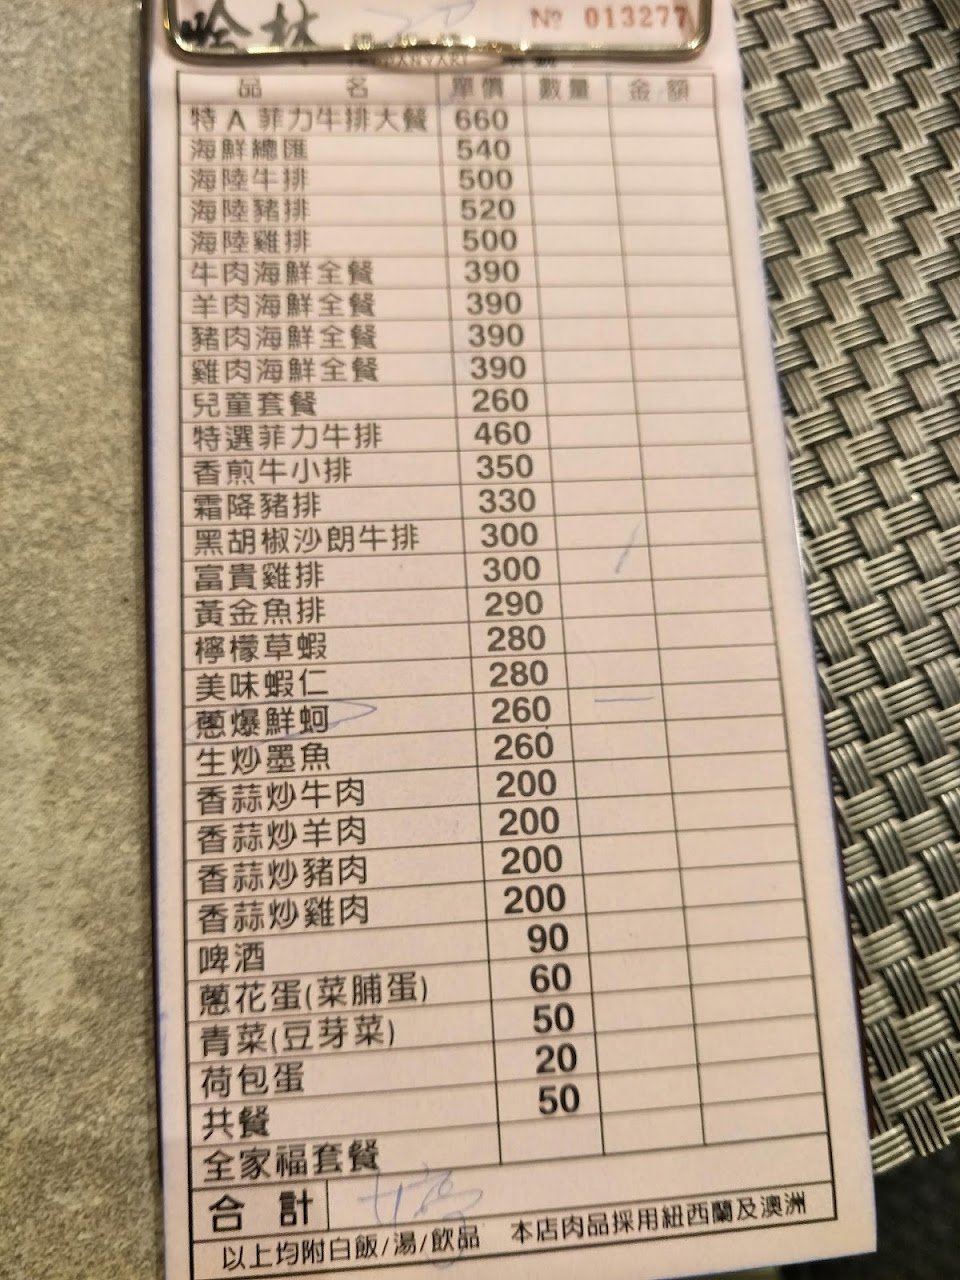 哈林
№ 013277
品名 單價 數量 金額
特A菲力牛排大餐 660
海鮮總匯 540
海陸牛排 500
海陸豬排 520
海陸雞排 500
牛肉海鮮全餐 390
羊肉海鮮全餐 390
豬肉海鮮全餐 390
雞肉海鮮全餐 390
兒童套餐 260
特選菲力牛排 460
香煎牛小排 350
霜降豬排 330
黑胡椒沙朗牛排 300
富貴雞排 300
黃金魚排 290
檸檬草蝦 280
美味蝦仁 280
蔥爆鮮蚵 260
生炒墨魚 260
香蒜炒牛肉 200
香蒜炒羊肉 200
香蒜炒豬肉 200
香蒜炒雞肉 200
啤酒 90
蔥花蛋(菜脯蛋) 60
青菜(豆芽菜) 50
荷包蛋 20
共餐 50
全家福套餐
合計
以上均附白飯/湯/飲品 本店肉品採用紐西蘭及澳洲